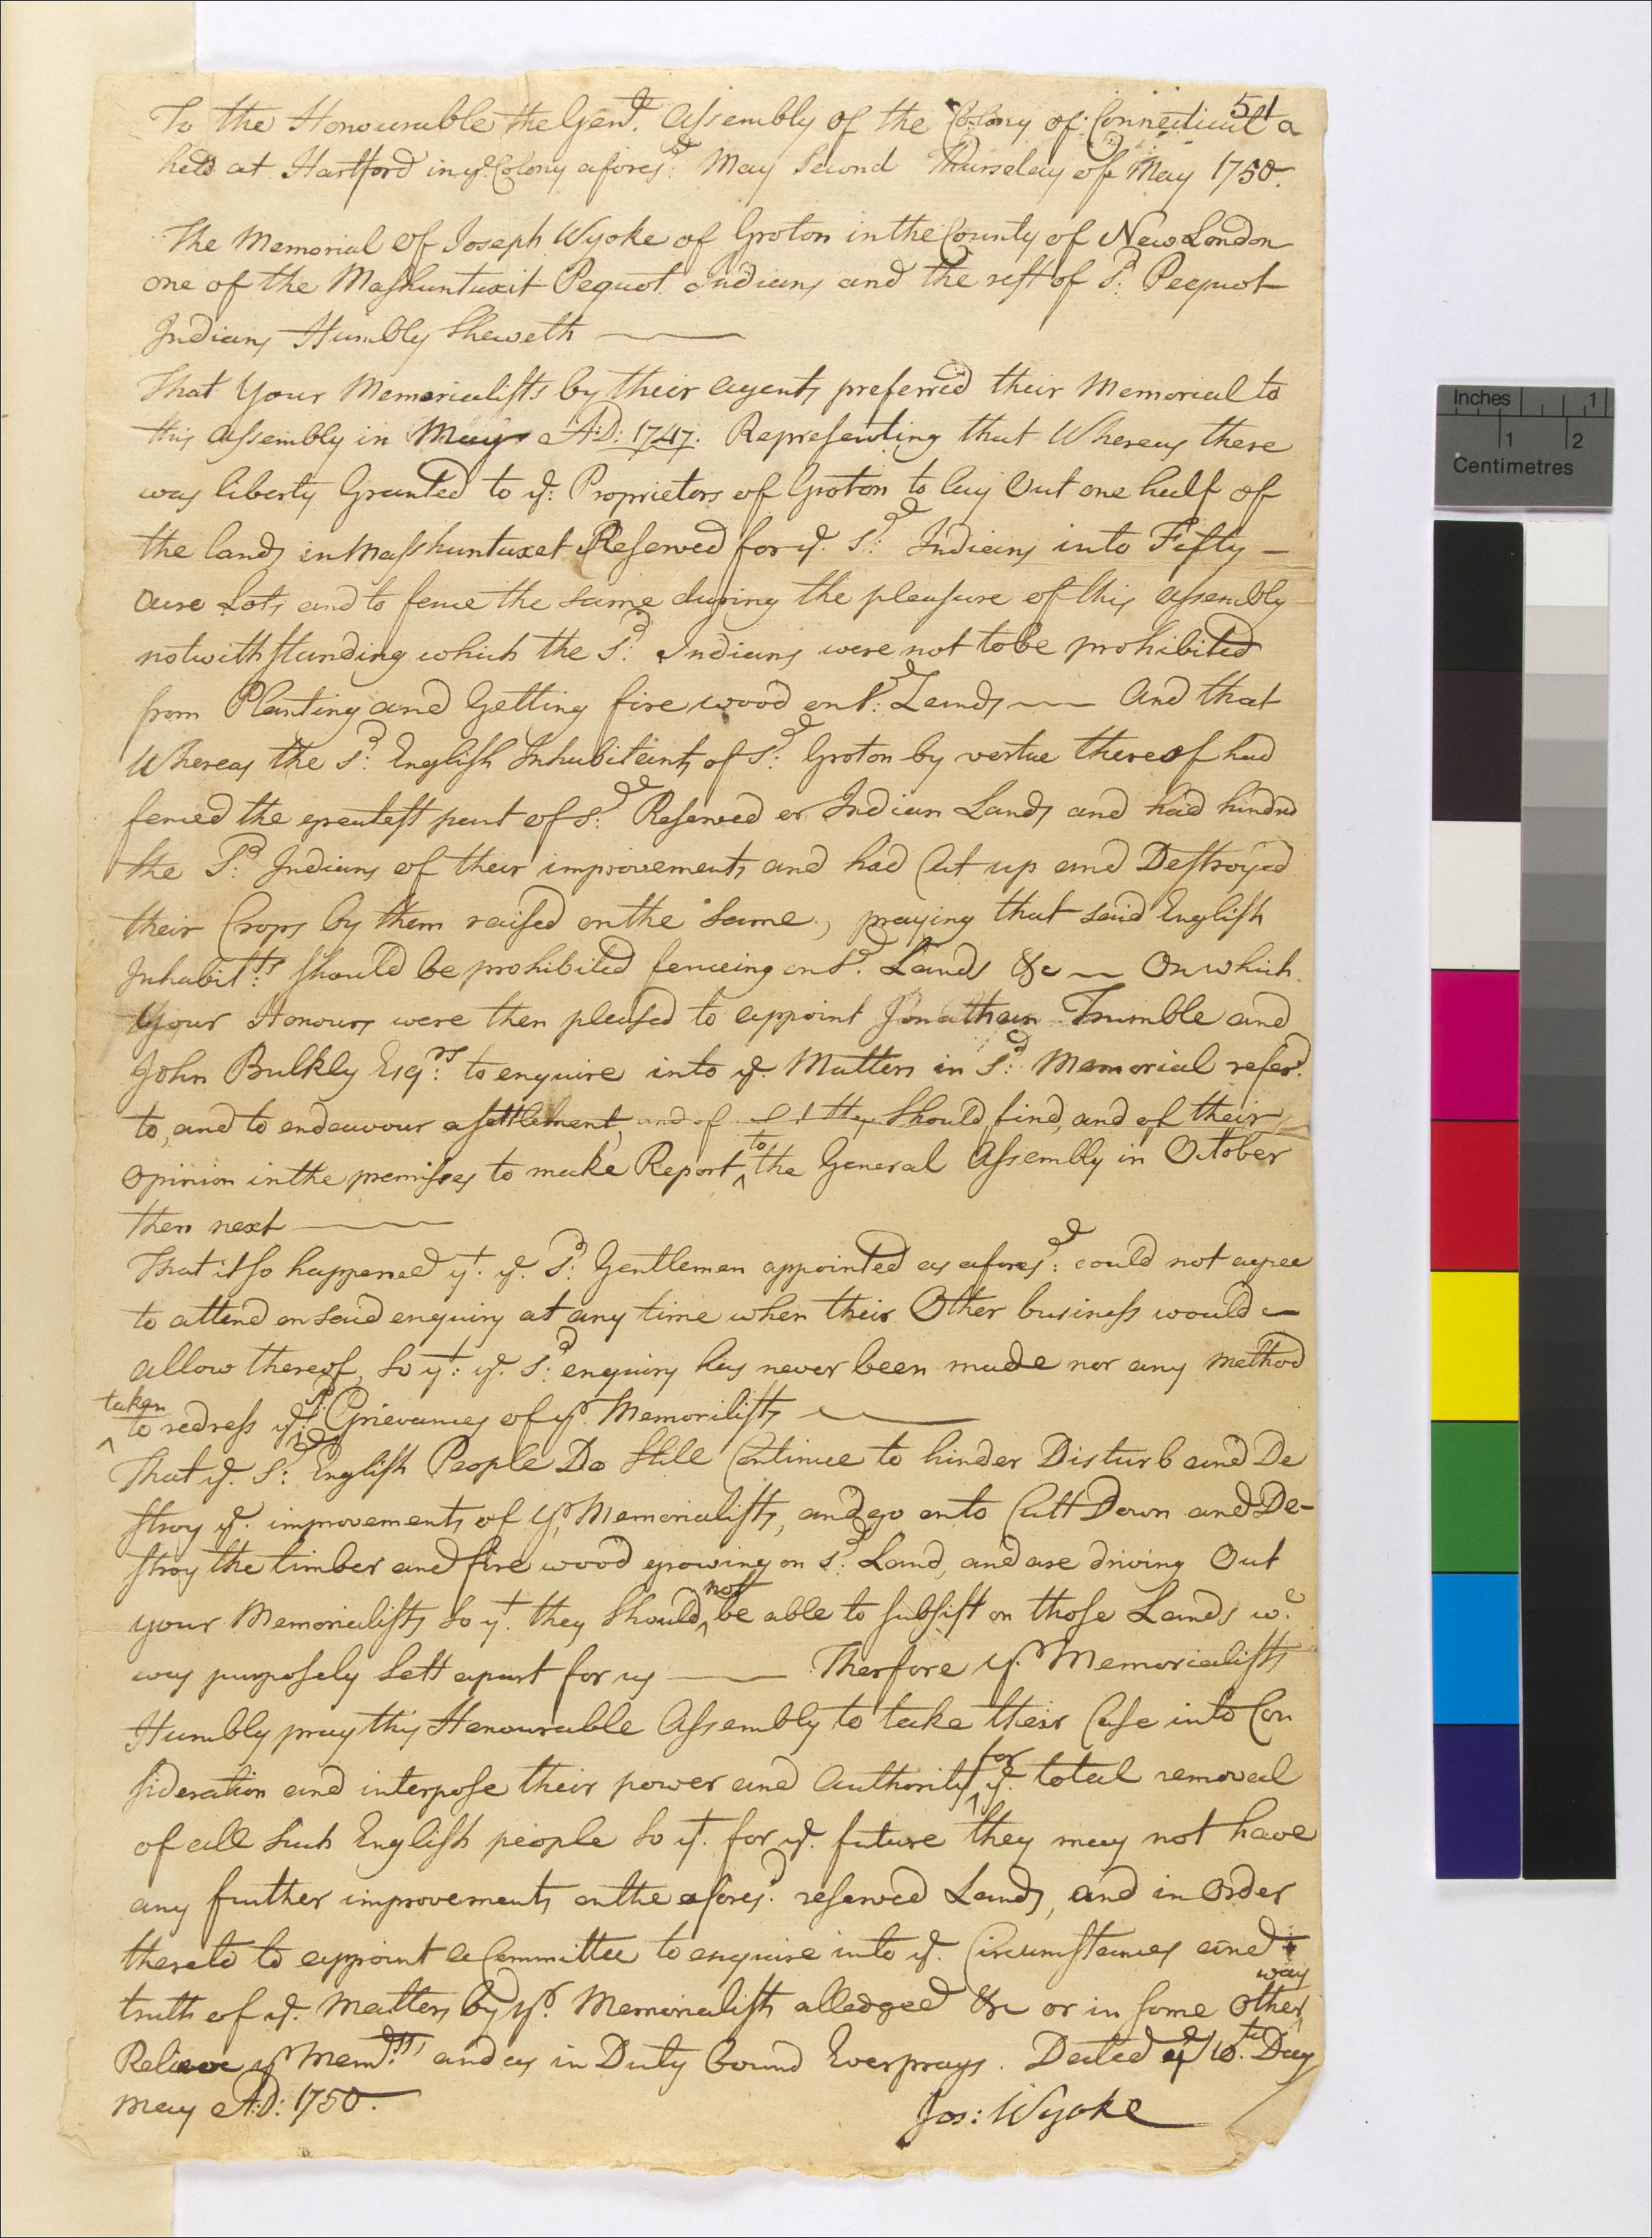 51a
To the Honourable the Gen.ll Assembly of the Colony of Connecticut
held at Hartford in ye. Colony afores:d May Second Thursday of May 1750.
The Memorial Of Joseph Wyoke of Groton in the County of New London
one of the Mashuntuxit Pequot Indians and the rest of S:d Pequot
Indians Humbly Sheweth
That Your Memorialists by their agents preferred their Memorial to
this assembly in May A:D: 1747. Representing that Whereas there
was liberty Granted to ye: Proprietors of Groton to lay Out one half of
the lands in Masshuntuxet Reserved for ye. S:d Indians into Fifty –
acre Lots and to fence the same during the pleasure of this assembly
notwithstanding which the S:d Indians were not to be prohibited
from Planting and Getting fire wood on S:d Lands —— And that
Whereas the S:d English Inhabitants of S:d Groton by vertue thereof had
fenced the greatest part of S:d Reserved or Indian Lands and had hindrd
the S:d Indians of their improvements and had Cut up and Destroyed
their Crops by them raised on the same, praying that said English
Inhabit:ts should be prohibited fenceing on S:d Lands &c — On which
Your Honours were then pleased to appoint Jonathan Trumble and
John Bulkly Esq:rs to enquire into ye. Matters in S:d Memorial referd.
to, and to endeavour a settlement, and of they should find, and of their
opinion in the premisses to make Report ^to the General Assembly in October
then next
That it so happened yt. ye. S:d Gentlemen appointed as afores:d could not agree
to attend on said enquiry at any time when their Other business would –
allow thereof, So yt: ye. S:d enquiry has never been made nor any method
^taken to redress ye. S:d Grievances of yr. Memorilists
That ye. S:d English People Do Still Continue to hinder Disturb and De
stroy ye. improvements of yr. Memorialists, and go on to Cutt Down and De-
stroy the timber and fire wood growing on S:d Land, and are driving Out
your Memorialists So yt. they Should ^not be able to subsist on those Lands w.c
was purposely Sett apart for us —— Therfore yr. Memorialists
Humbly pray this Honourable Assembly to take their Case into Con
sideration and interpose their power and Authority ^for ye. total removal
of all Such English people So yt. for ye. future they may not have
any further improvements on the afores:d reserved Lands, and in Order
thereto to appoint a Committee to enquire into ye. Circumstances and
truth of ye. Matters by yr. Memorialists alledged &c or in some Other ^way
Relieve yr Mem:lsts and as in Duty bound Ever prays. Dated ye 10.th Day
May A:D: 1750.
Jos: Wyoke
Inches 1
1 2
Centimetres